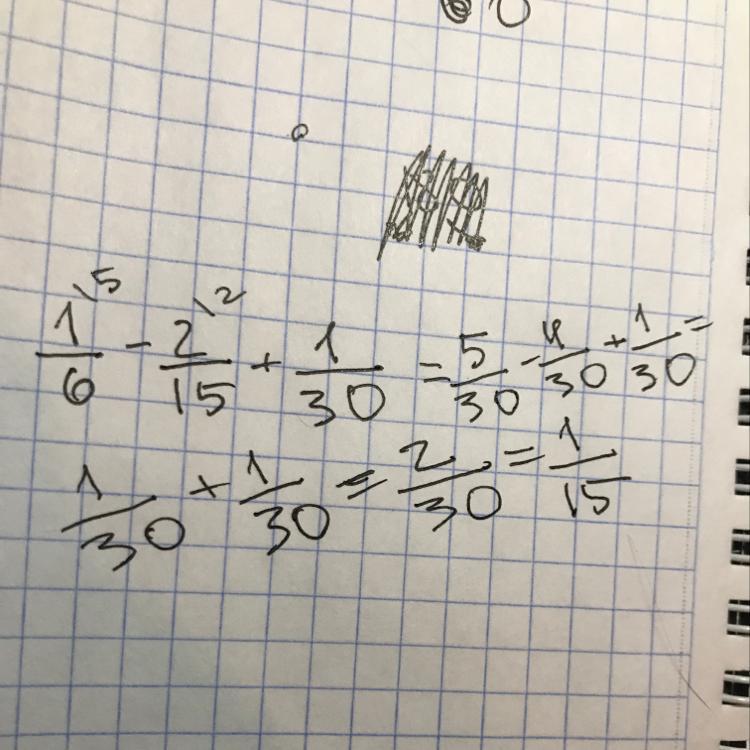 0
1\5/6 - 2\2/15 + 1/30 = 5/30 - 4/30 + 1/30 =
1/30 + 1/30 = 2/30 = 1/15